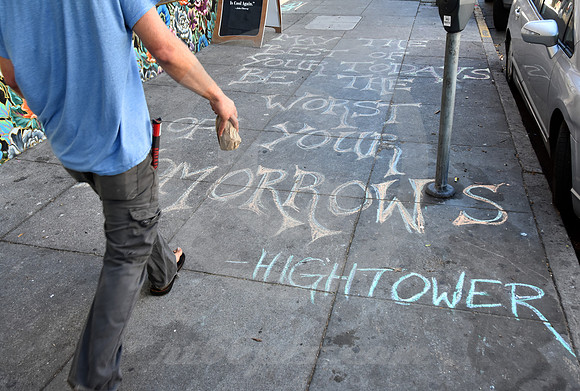 Is Cool Again."
MAY THE
BEST OF
YOUR TODAYS
BE THE
WORST
OF YOUR
TOMORROWS
-HIGHTOWER